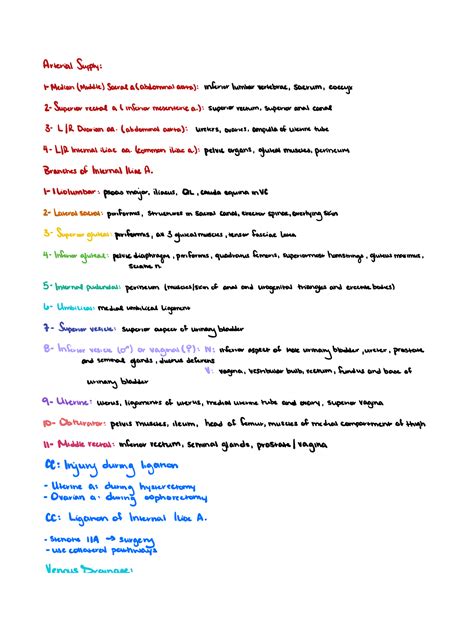 Arterial Supply:
1- Median (Middle) Sacral a (abdominal aorta): inferior lumbar vertebrae, sacrum, coccyx
2- Superior rectal a (inferior mesenteric a.): superior rectum, superior anal canal
3- L/R Ovarian aa. (abdominal aorta): ureters, ovaries, ampulla of uterine tube
4- L/R Internal iliac aa. (common iliac a.): pelvic organs, gluteal muscles, perineum
Branches of Internal Iliac A.
1- Iliolumbar: psoas major, iliacus, QL, cauda equina in VC
2- Lateral sacral: piriformis, structures in sacral canal, erector spinae, overlying skin
3- Superior gluteal: piriformis, all 3 gluteal muscles, tensor fasciae lata
4- Inferior gluteal: pelvic diaphragm, piriformis, quadratus femoris, superiormost hamstrings, gluteus maximus,
sciatic n.
5- Internal pudendal: perineum (muscles/skin of anal and urogenital triangles and erectile bodies)
6- Umbilical: medial umbilical ligament
7- Superior vesicle: superior aspect of urinary bladder
8- Inferior vesicle (♂) or vaginal (♀): IV: inferior aspect of male urinary bladder, ureter, prostate
and seminal glands, ductus deferens
V: vagina, vestibular bulb, rectum, fundus and base of
urinary bladder
9- Uterine: uterus, ligaments of uterus, medial uterine tube and ovary, superior vagina
10- Obturator: pelvis muscles, ileum, head of femur, muscles of medial compartment of thigh
11- Middle rectal: inferior rectum, seminal glands, prostate / vagina
CC: Injury during ligation
- Uterine a: during hysterectomy
- Ovarian a: during oophorectomy
CC: Ligation of Internal Iliac A.
- stenotic IIA → surgery
- use collateral pathways
Venous Drainage: